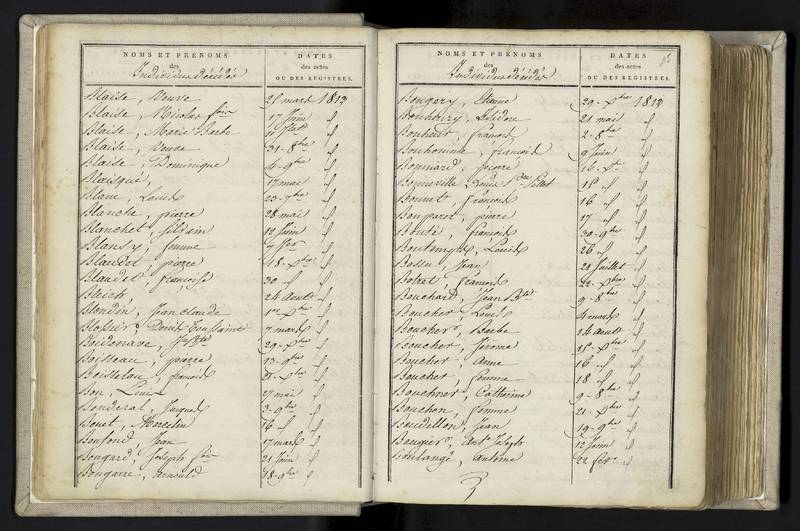 NOMS ET PRÉNOMS
des
Individus décédés
DATES
des actes
OU DES REGISTRES.
Blaise, Veuve 25 mars 1813
Blaise, Nicolas 17 Juin
Blaise, Marie Barbe
Blaise, veuve 31 8bre
Blaise, Dominique 4 9bre
Blaisqué, 17 mai
Blanc, Louis 23 7bre
Blanche, pierre 28 mai
Blanchet, silvain 12 Juin
Blansy, femme
Blaudot, pierre 18 Xbre
Blaudet, françoise 30
Bleich, 24 août
Blondin, Jean claude 1er Xbre
Denis Toussaint 7 mars
Boidenave, 29 Xbre
Boisseau, pierre 13 9bre
Boisseleau, françois 21 Xbre
Bon, Louis 27 mai
Bonderal, Jacques 3 9bre
Bonet, Marcelin 16
Bonfond, Jean 17 mars
Bongard, Joseph 21 Juin
Bongare, arnould 18 9bre
NOMS ET PRÉNOMS
des
Individus décédés
DATES
des actes
OU DES REGISTRES.
Bongery, Etienne 29 Xbre 1813
Bonhoury, Isidore 21 mai
Bonheur, françois 2 8bre
Bonhomme, françois 9 Juin
Bonniard, pierre 16 Xbre
Bonneville, Louis 15
Bonnet, françois 16
Bonparet, pierre 17
Bonté, françois 30 9bre
Louis 26
Bossu, Jean 21 Juillet
Botret, françois 22 Xbre
Bouchard, Jean Bte 9 8bre
Boucher, Louis 4 mars
Boucher, Barbe 14 août
Boucher, Jerome 15 Xbre
Boucher, Anne 16
Boucher, femme 18
Bouchner, Catherine 9 8bre
Bouchon, femme 21 Xbre
Boudillon, Jean 19 9bre
Bougier, Ant. Joseph 12 Juin
Boulangé, antoine 22